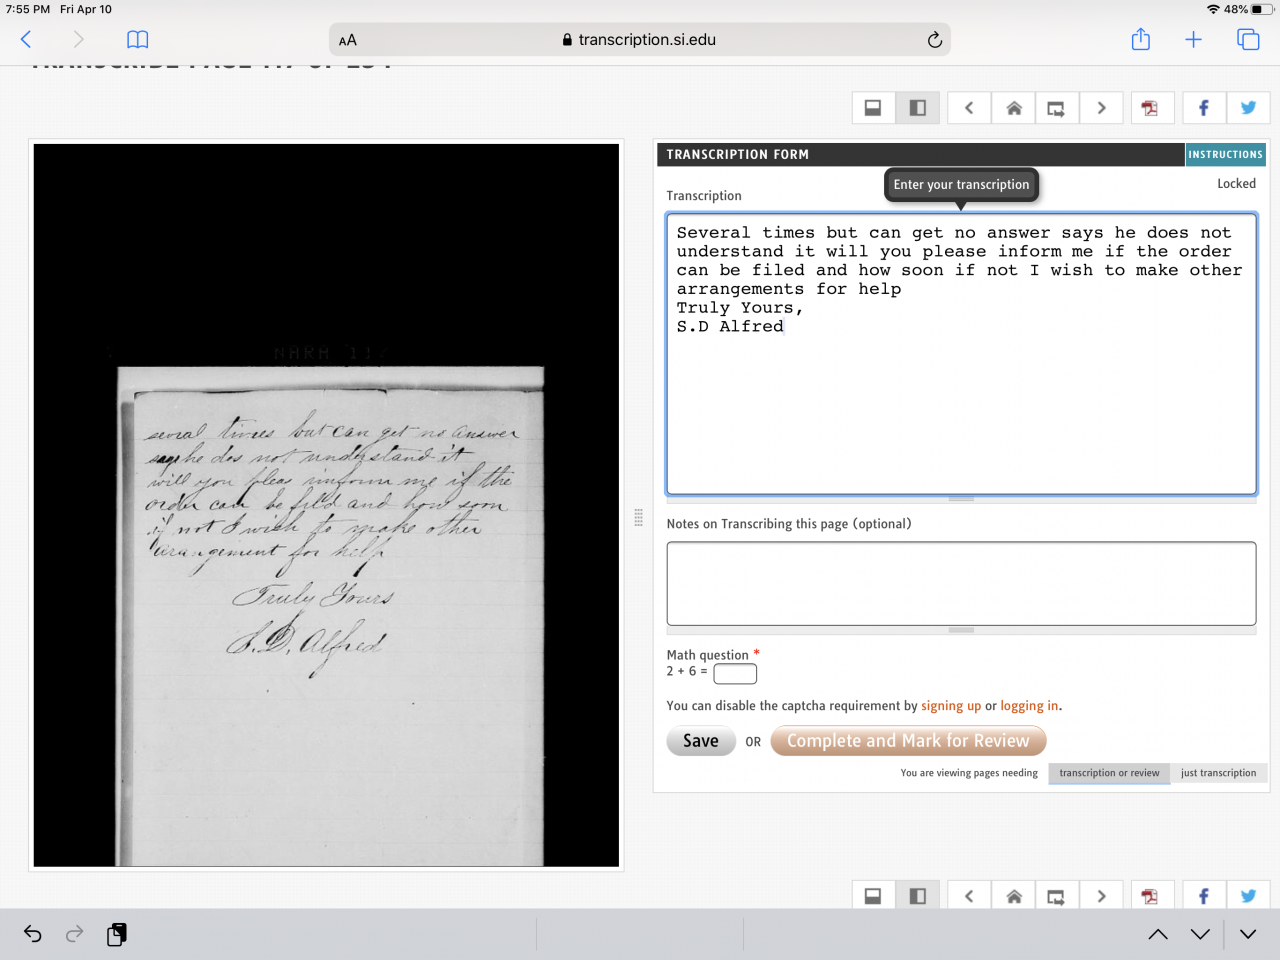 7:55 PM Fri Apr 10
48%
AA
transcription.si.edu
TRANSCRIBE PAGE 117 OF 254
TRANSCRIPTION FORM
INSTRUCTIONS
Enter your transcription
Locked
Transcription
Several times but can get no answer says he does not
understand it will you please inform me if the order
can be filed and how soon if not I wish to make other
arrangements for help
Truly Yours,
S.D Alfred
NARA 11
several times but can get no answer
says he des not understand it
will you pleas innform me if the
order can be fild and how soon
if not I wish to make other
arrangement for help
Truly Yours
S.D. Alfred
Notes on Transcribing this page (optional)
Math question *
2 + 6 =
You can disable the captcha requirement by signing up or logging in.
Save OR Complete and Mark for Review
You are viewing pages needing transcription or review just transcription